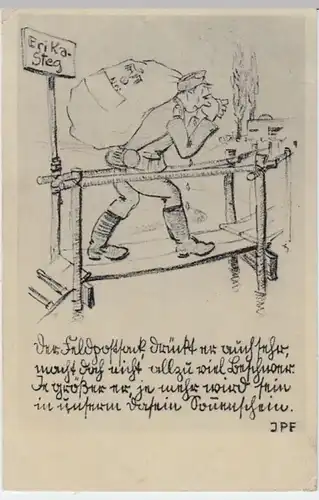 Erika-
Steg
Der Feldpostsack drückt er auch sehr,
macht doch nicht allzu viel Beschwer.
Je größer er, je mehr wird sein
in unserm Dasein Sonnenschein.
JPF